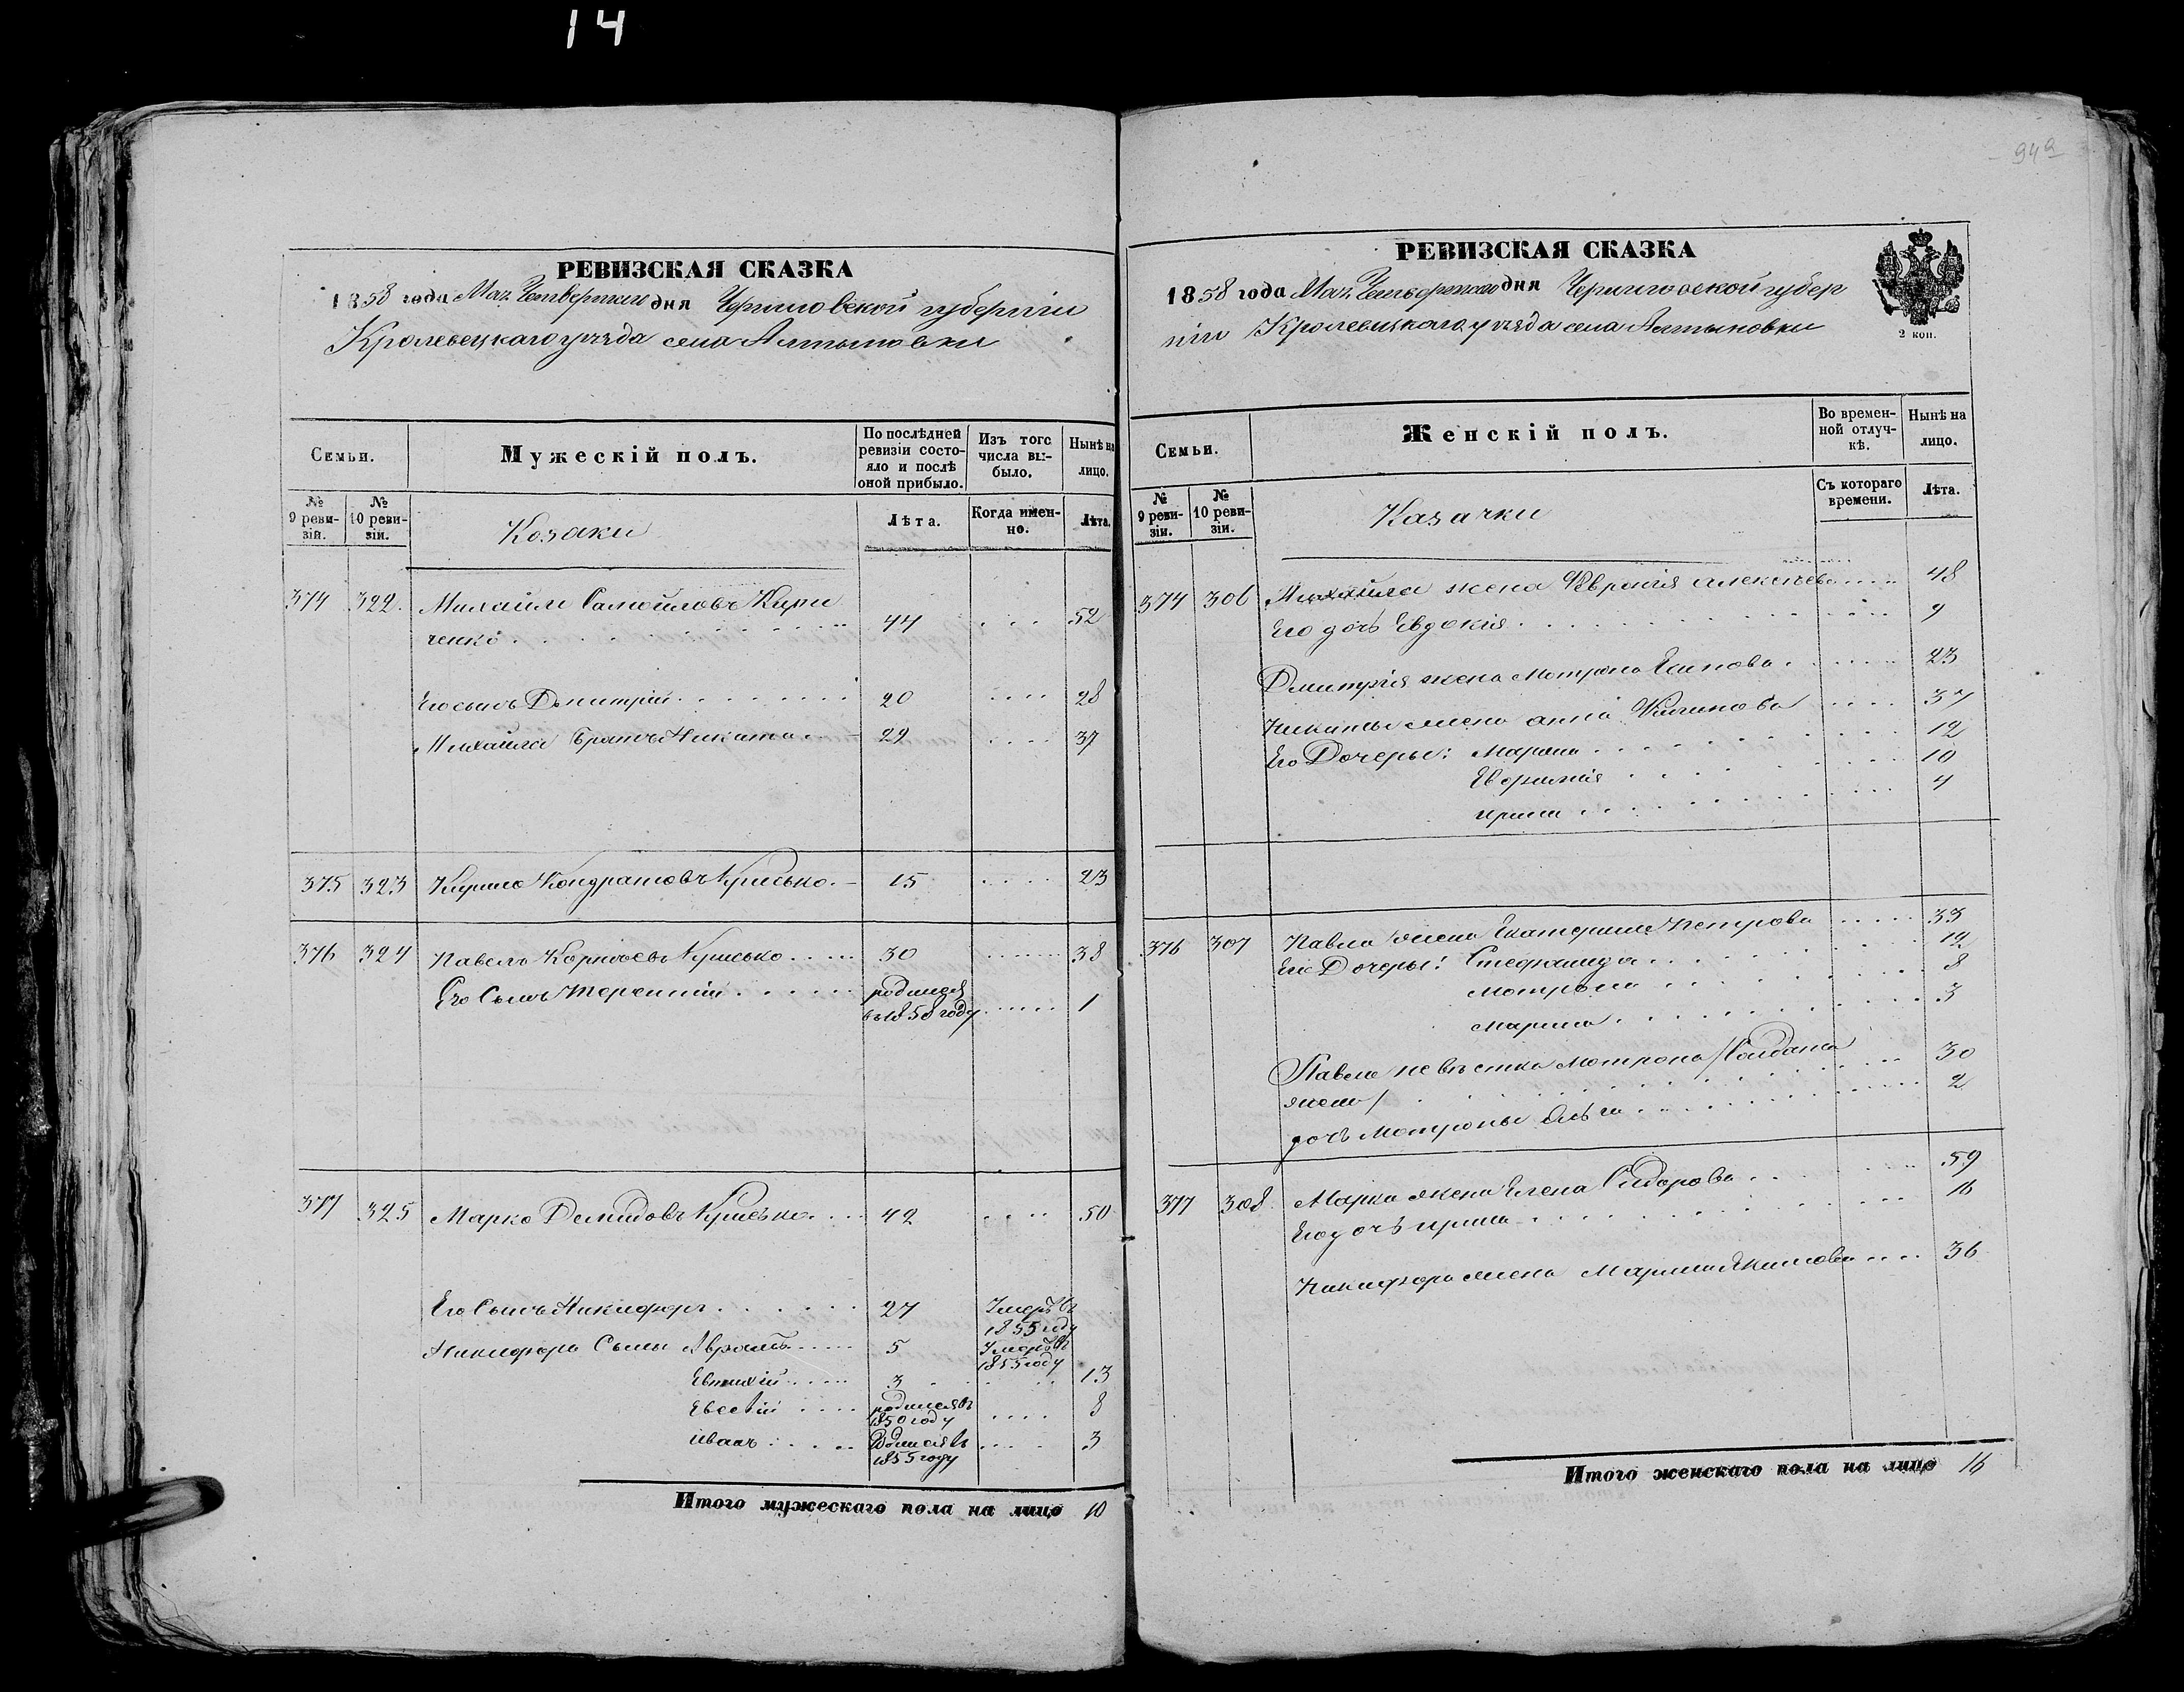 14
РЕВИЗСКАЯ СКАЗКА
1858 года Мая Четвертаго дня Черниговской губерніи
Кролевецкаго уѣзда села Алтыновки
Семьи.
Мужескій полъ.
По послѣдней ревизіи состояло и послѣ оной прибыло.
Изъ того числа выбыло.
Нынѣ на лицо.
№ 9 ревизіи.
№ 10 ревизіи.
Козаки
Лѣта.
Когда именно.
Лѣта.
374 322. Михайло Самойловъ Кири
ченко 44 52
Его сынъ Дмитрій 20 28
Михайла братъ Никита 29 37
375 323 Кирило Кондратовъ Крисько 15 23
376 324 Павелъ Корнѣевъ Крисько 30 38
Его Сынъ Терентій родился
въ 1858 году 1
377 325 Марко Демидовъ Крисько 42 50
Его Сынъ Никифоръ 27 Умеръ въ
1855 году
Никифора Сыны Аврамъ 5 Умеръ въ
1855 году
Евтихій 3 13
родился въ
1850 году 8
Иванъ Родился въ
1855 году 3
Итого мужескаго пола на лицо 10
94а
РЕВИЗСКАЯ СКАЗКА
1858 года Мая Четвертаго дня Черниговской губер
ніи Кролевецкаго уѣзда села Алтыновки
2 коп.
Семьи.
Женскій полъ.
Во временной отлучкѣ.
Нынѣ на лицо.
№ 9 ревизіи.
№ 10 ревизіи.
Казачки
Съ котораго времени.
Лѣта.
374 306 Михайла жена Февронія Алексѣева 48
Его дочь Евдокія 9
Дмитрія жена Мотрона 23
Никиты жена Анна 37
Его Дочеры: Марина 12
Евфимія 10
Ирина 4
376 307 Павла жена Екатерина Петрова 33
Его Дочеры: Стефанида 12
Мотрона 8
Марина 3
Павла невѣстка Мотрона /Солдатка
жена/ 30
дочь Мотроны 2
377 308. Марка жена Елена Сидорова 59
Его дочь Ирина 16
Никифора жена Марина Якимова 36
Итого женскаго пола на лицо 16